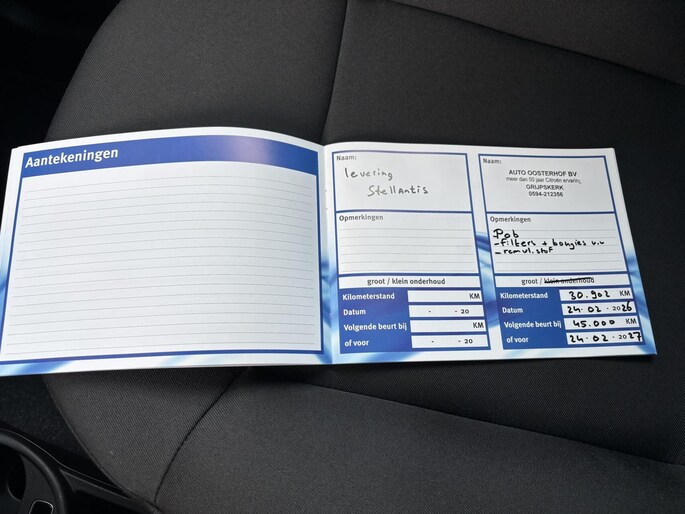 Aantekeningen
Naam:
levering
Stellantis
Opmerkingen
groot / klein onderhoud
Kilometerstand KM
Datum - - 20
Volgende beurt bij KM
of voor - - 20
Naam:
AUTO OOSTERHOF BV
meer dan 50 jaar Citroën ervaring
GRIJPSKERK
0594-212356
Opmerkingen
- filters + bougies v.v
- remvl.stof
groot / klein onderhoud
Kilometerstand 30.902 KM
Datum 24-02-2026
Volgende beurt bij 45.000 KM
of voor 24-02-2027